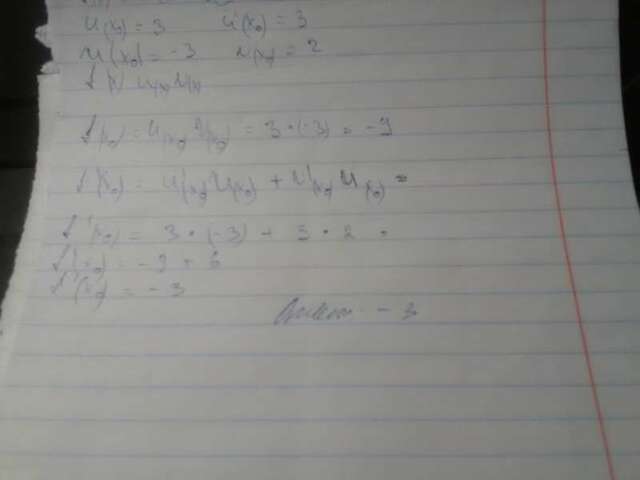 u(x₀) = 3 u'(x₀) = 3
v(x₀) = -3 v'(x₀) = 2
f(x) u(x) v(x)
f(x₀) = u(x₀) v(x₀) = 3 · (-3) = -9
f'(x₀) = u'(x₀) v(x₀) + v'(x₀) u(x₀) =
f'(x₀) = 3 · (-3) + 3 · 2 =
f'(x₀) = -9 + 6
f'(x₀) = -3
- 3